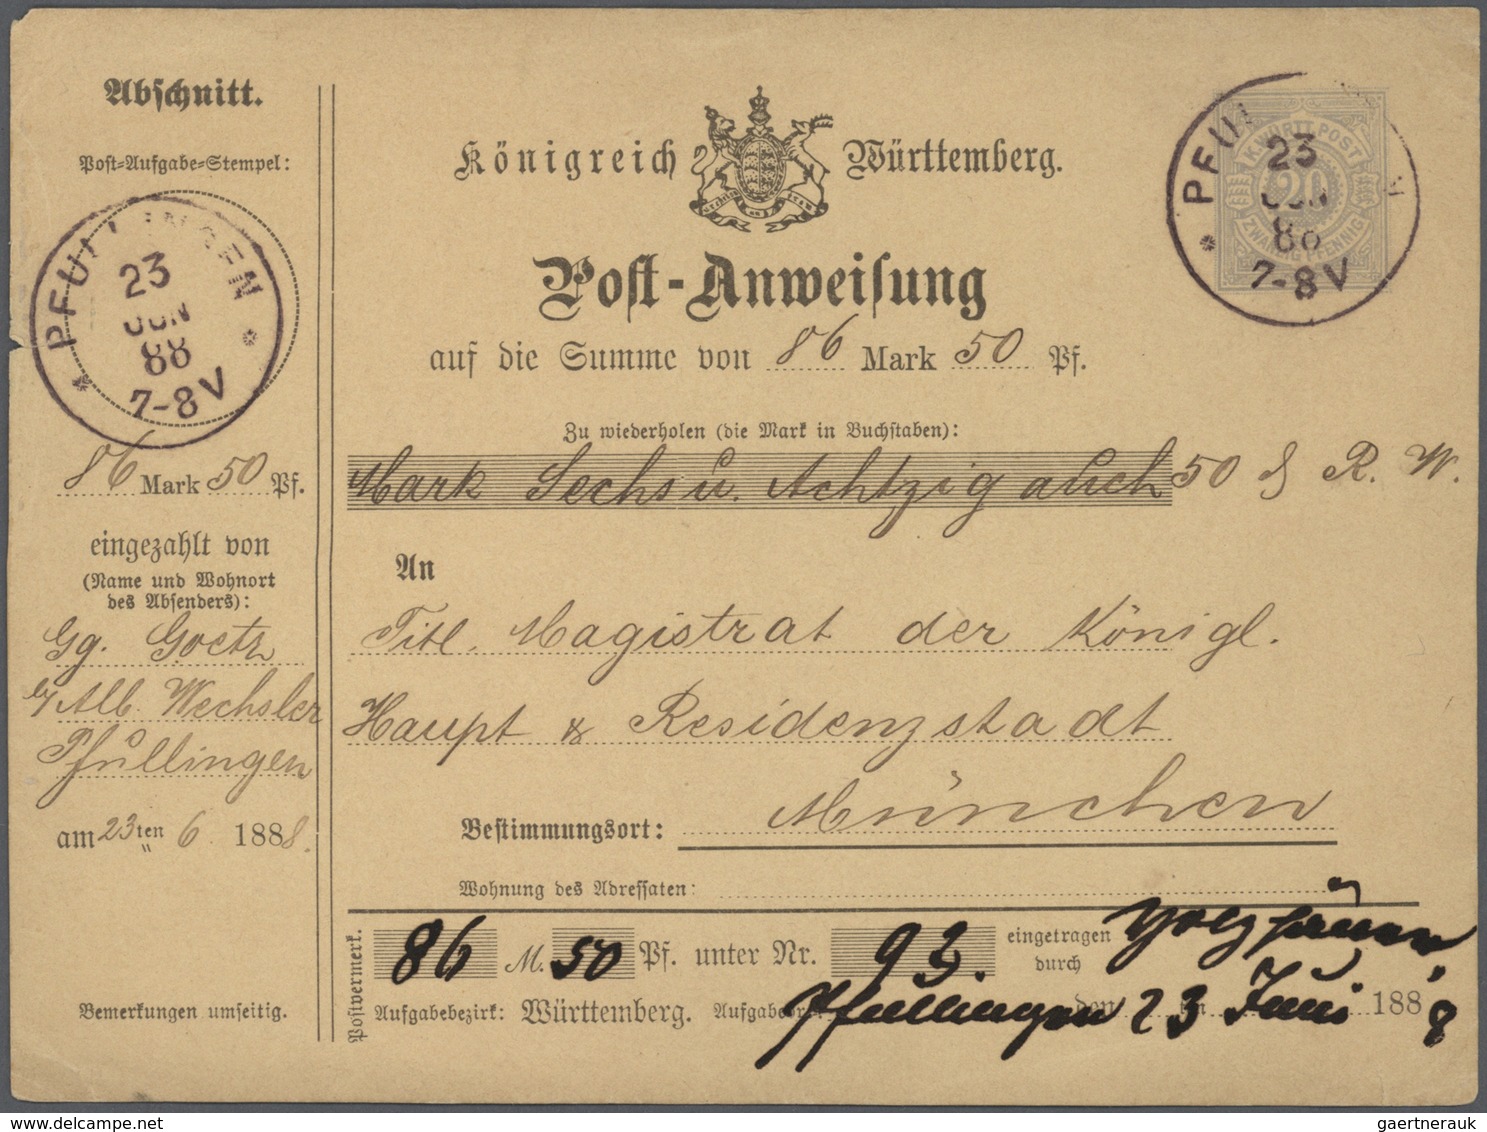 Abschnitt.
Post-Aufgabe-Stempel:
PFULLINGEN
23
JUN
88
7-8V
86 Mark 50 Pf.
eingezahlt von
(Name und Wohnort
des Absenders):
Gg. Goetz
b/ Alb. Wechsler
Pfullingen
am 23ten 6. 1888.
Bemerkungen umseitig.
Königreich Württemberg.
Post-Anweisung
auf die Summe von 86 Mark 50 Pf.
Zu wiederholen (die Mark in Buchstaben):
Mark Sechs u. Achtzig auch 50 ₰ R. W.
An
Titl. Magistrat der Königl.
Haupt & Residenzstadt
München
Bestimmungsort:
Wohnung des Adressaten:
Postvermerk.
86 M. 50 Pf. unter Nr. 93. eingetragen
durch
Aufgabebezirk: Württemberg. Pfullingen den 23 Juni 1888
PFUL
K. WÜRTT. POST
20
ZWANZIG PFENNIG
23
JUN
88
7-8V
gaertnerauk